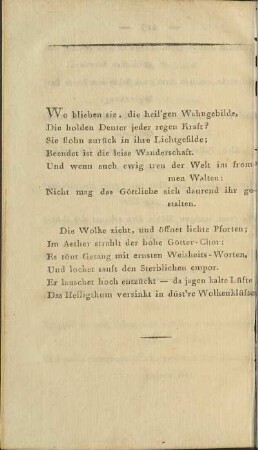 Wo blieben sie, die heil'gen Wahngebilde,
Die holden Deuter jeder regen Kraft?
Sie flohn zurück in ihre Lichtgefilde;
Beendet ist die leise Wanderschaft.
Und wenn auch ewig treu der Welt im from-
men Walten:
Nicht mag das Göttliche sich daurend ihr ge-
stalten.
Die Wolke zieht, und öffnet lichte Pforten;
Im Aether strahlt der hohe Götter-Chor:
Es tönt Gesang mit ernsten Weisheits-Worten,
Und locket sanft den Sterblichen empor.
Er lauschet hoch entzückt — da jagen kalte Lüfte
Das Heiligthum versinkt in düst're Wolkenklüfte